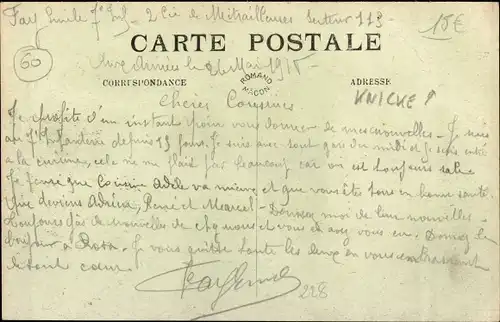 Fay Emile 7e Inf - 2 Cie de Mitrailleuses Secteur 113 -
15€
60
CARTE POSTALE
Aux Armées le 26 Mai 1915 -
ROMANO
MACON
CORRESPONDANCE
ADRESSE
KNICKE !
Chères Cousines
Je profite d'un instant pour vous donner de mes nouvelles - Je suis
au 7e Infanterie depuis 19 jours. Je suis avec tout gars du midi et je suis
à la cuisine, cela ne me plait pas beaucoup car on est toujours sale
Je pense que Cousine Adèle va mieux, et que vous êtes tous en bonne santé.
Que deviens René et Marcel - Donnez moi de leur nouvelles -
Toujours pas de nouvelles de chez nous et vous en avez vous eu. Donnez le
bonjour à Rosa. Je vous quitte toute les deux en vous embrassant
de tout coeur.
228